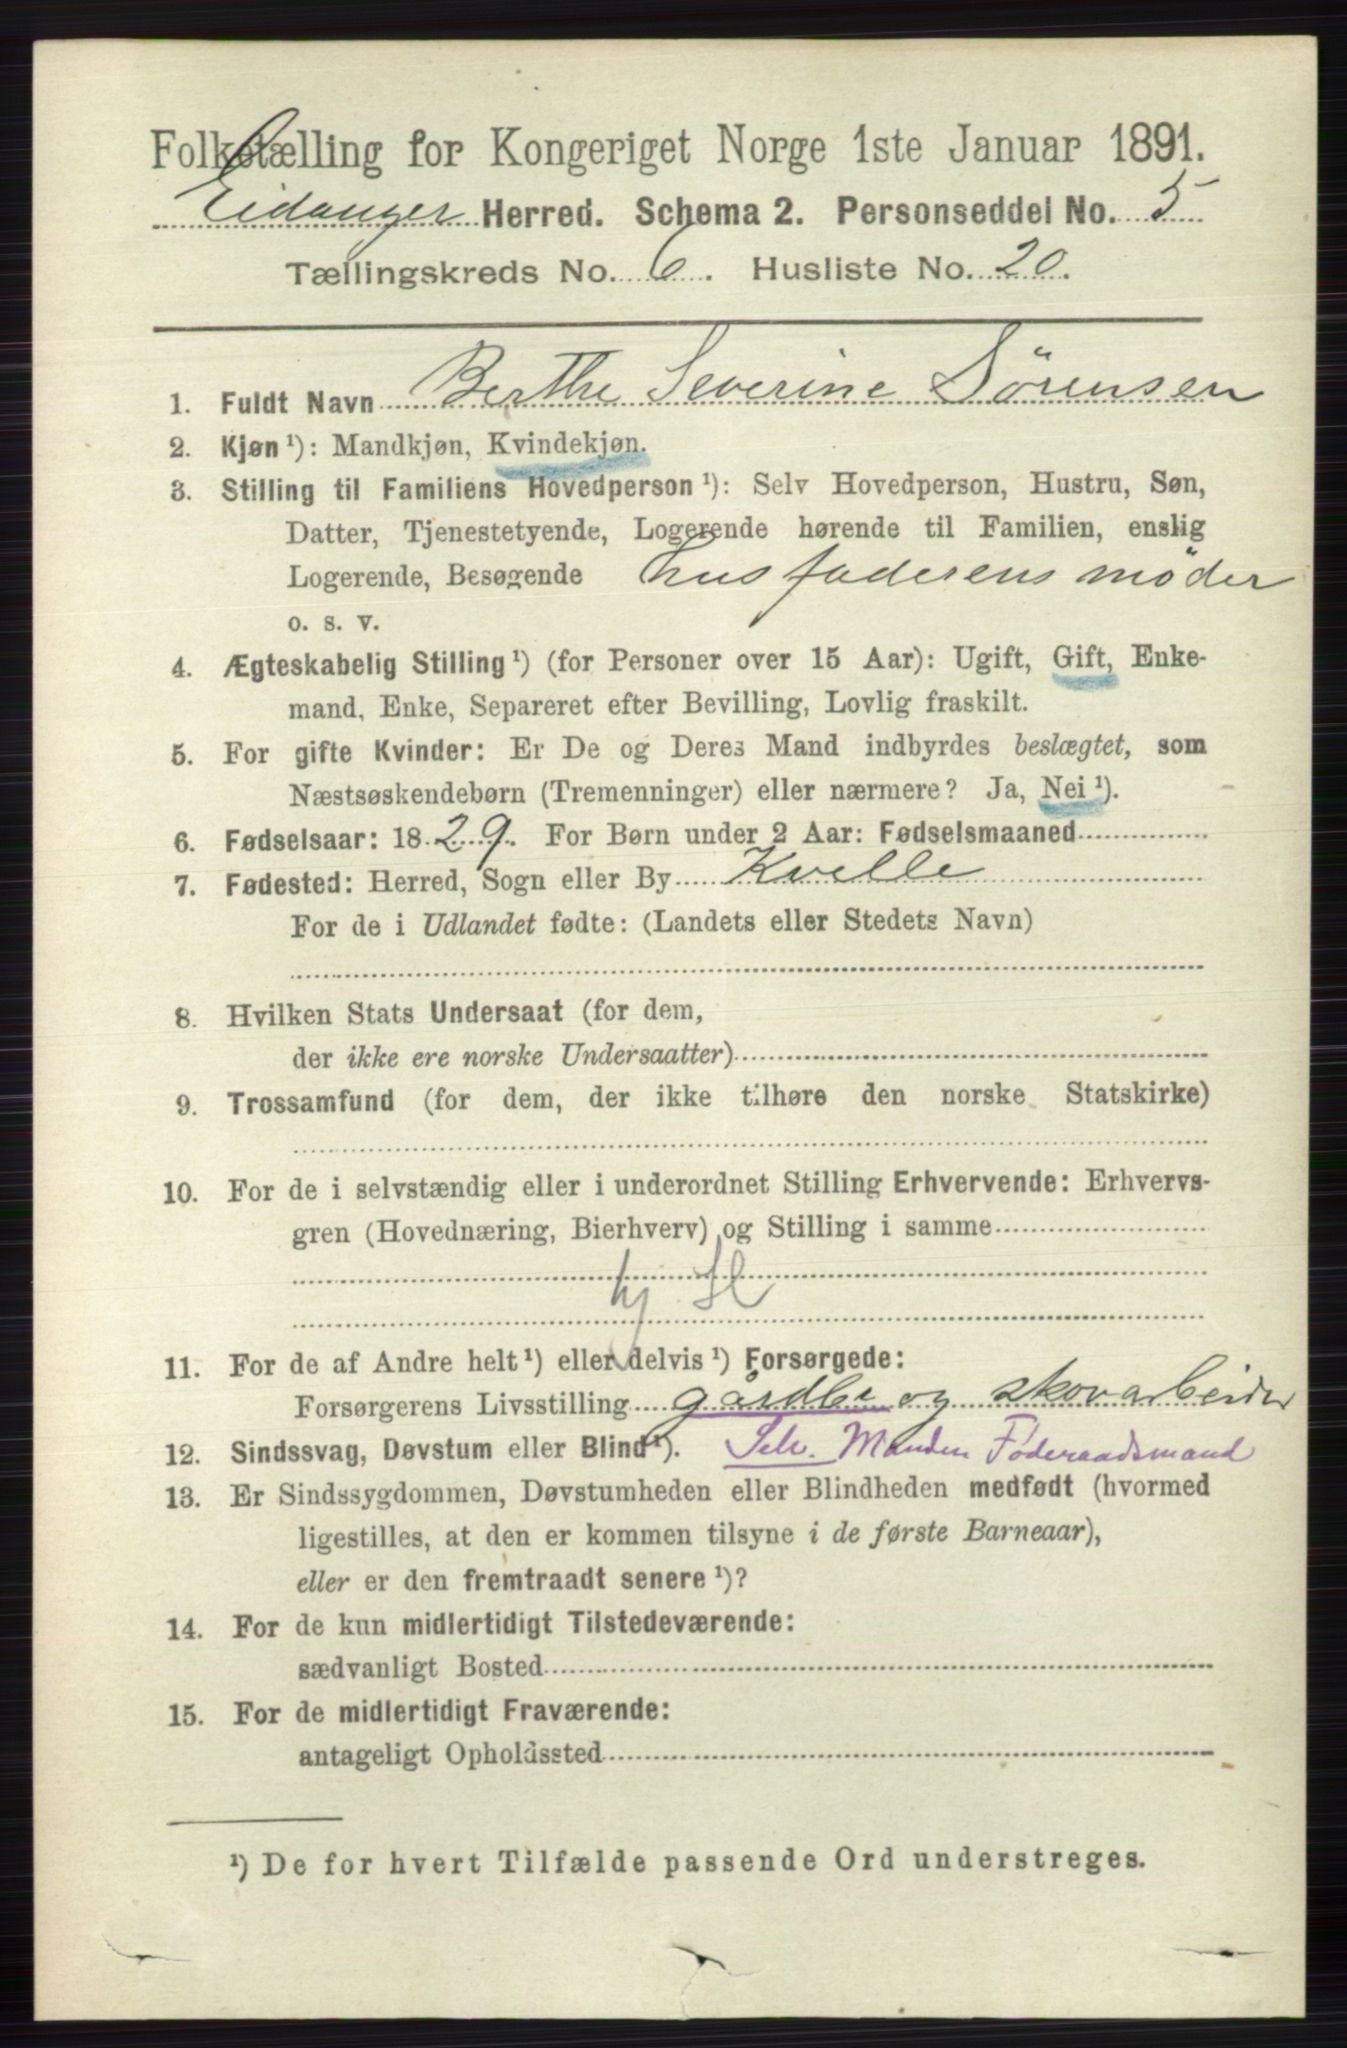 Folketælling for Kongeriget Norge 1ste Januar 1891.
Eidanger Herred. Schema 2. Personseddel No. 5
Tællingskreds No. 6. Husliste No. 20.
1. Fuldt Navn Berthe Severine Sørensen
2. Kjøn ¹): Mandkjøn, Kvindekjøn.
3. Stilling til Familiens Hovedperson ¹): Selv Hovedperson, Hustru, Søn,
Datter, Tjenestetyende, Logerende hørende til Familien, enslig
Logerende, Besøgende husfaderens møder
o. s. v.
4. Ægteskabelig Stilling ¹) (for Personer over 15 Aar): Ugift, Gift, Enke-
mand, Enke, Separeret efter Bevilling, Lovlig fraskilt.
5. For gifte Kvinder: Er De og Deres Mand indbyrdes beslægtet, som
Næstsøskendebørn (Tremenninger) eller nærmere? Ja, Nei ¹).
6. Fødselsaar: 1829. For Børn under 2 Aar: Fødselsmaaned
7. Fødested: Herred, Sogn eller By Kvelle
For de i Udlandet fødte: (Landets eller Stedets Navn)
8. Hvilken Stats Undersaat (for dem,
der ikke ere norske Undersaatter)
9. Trossamfund (for dem, der ikke tilhøre den norske Statskirke)
10. For de i selvstændig eller i underordnet Stilling Erhvervende: Erhvervs-
gren (Hovednæring, Bierhverv) og Stilling i samme
11. For de af Andre helt ¹) eller delvis ¹) Forsørgede:
Forsørgerens Livsstilling gårdbr og skovarbeider
12. Sindssvag, Døvstum eller Blind ¹). Selv. Manden Føderaadsmand
13. Er Sindssygdommen, Døvstumheden eller Blindheden medfødt (hvormed
ligestilles, at den er kommen tilsyne i de første Barneaar),
eller er den fremtraadt senere ¹)?
14. For de kun midlertidigt Tilstedeværende:
sædvanligt Bosted
15. For de midlertidigt Fraværende:
antageligt Opholdssted
¹) De for hvert Tilfælde passende Ord understreges.